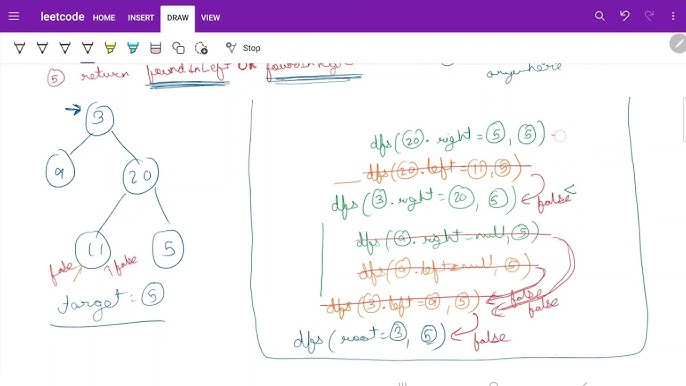 leetcode
HOME INSERT DRAW VIEW
Stop
5 return foundInLeft OR
anywhere
3
9 20
11 5
false false
target = 5
dfs(20.right = 5, 5)
dfs(20.left = 11, 5)
dfs(3.right = 20, 5) false
dfs(9.right = null, 5)
dfs(9.left = null, 5)
false
dfs(3.left = 9, 5) false
dfs(root = 3, 5) false